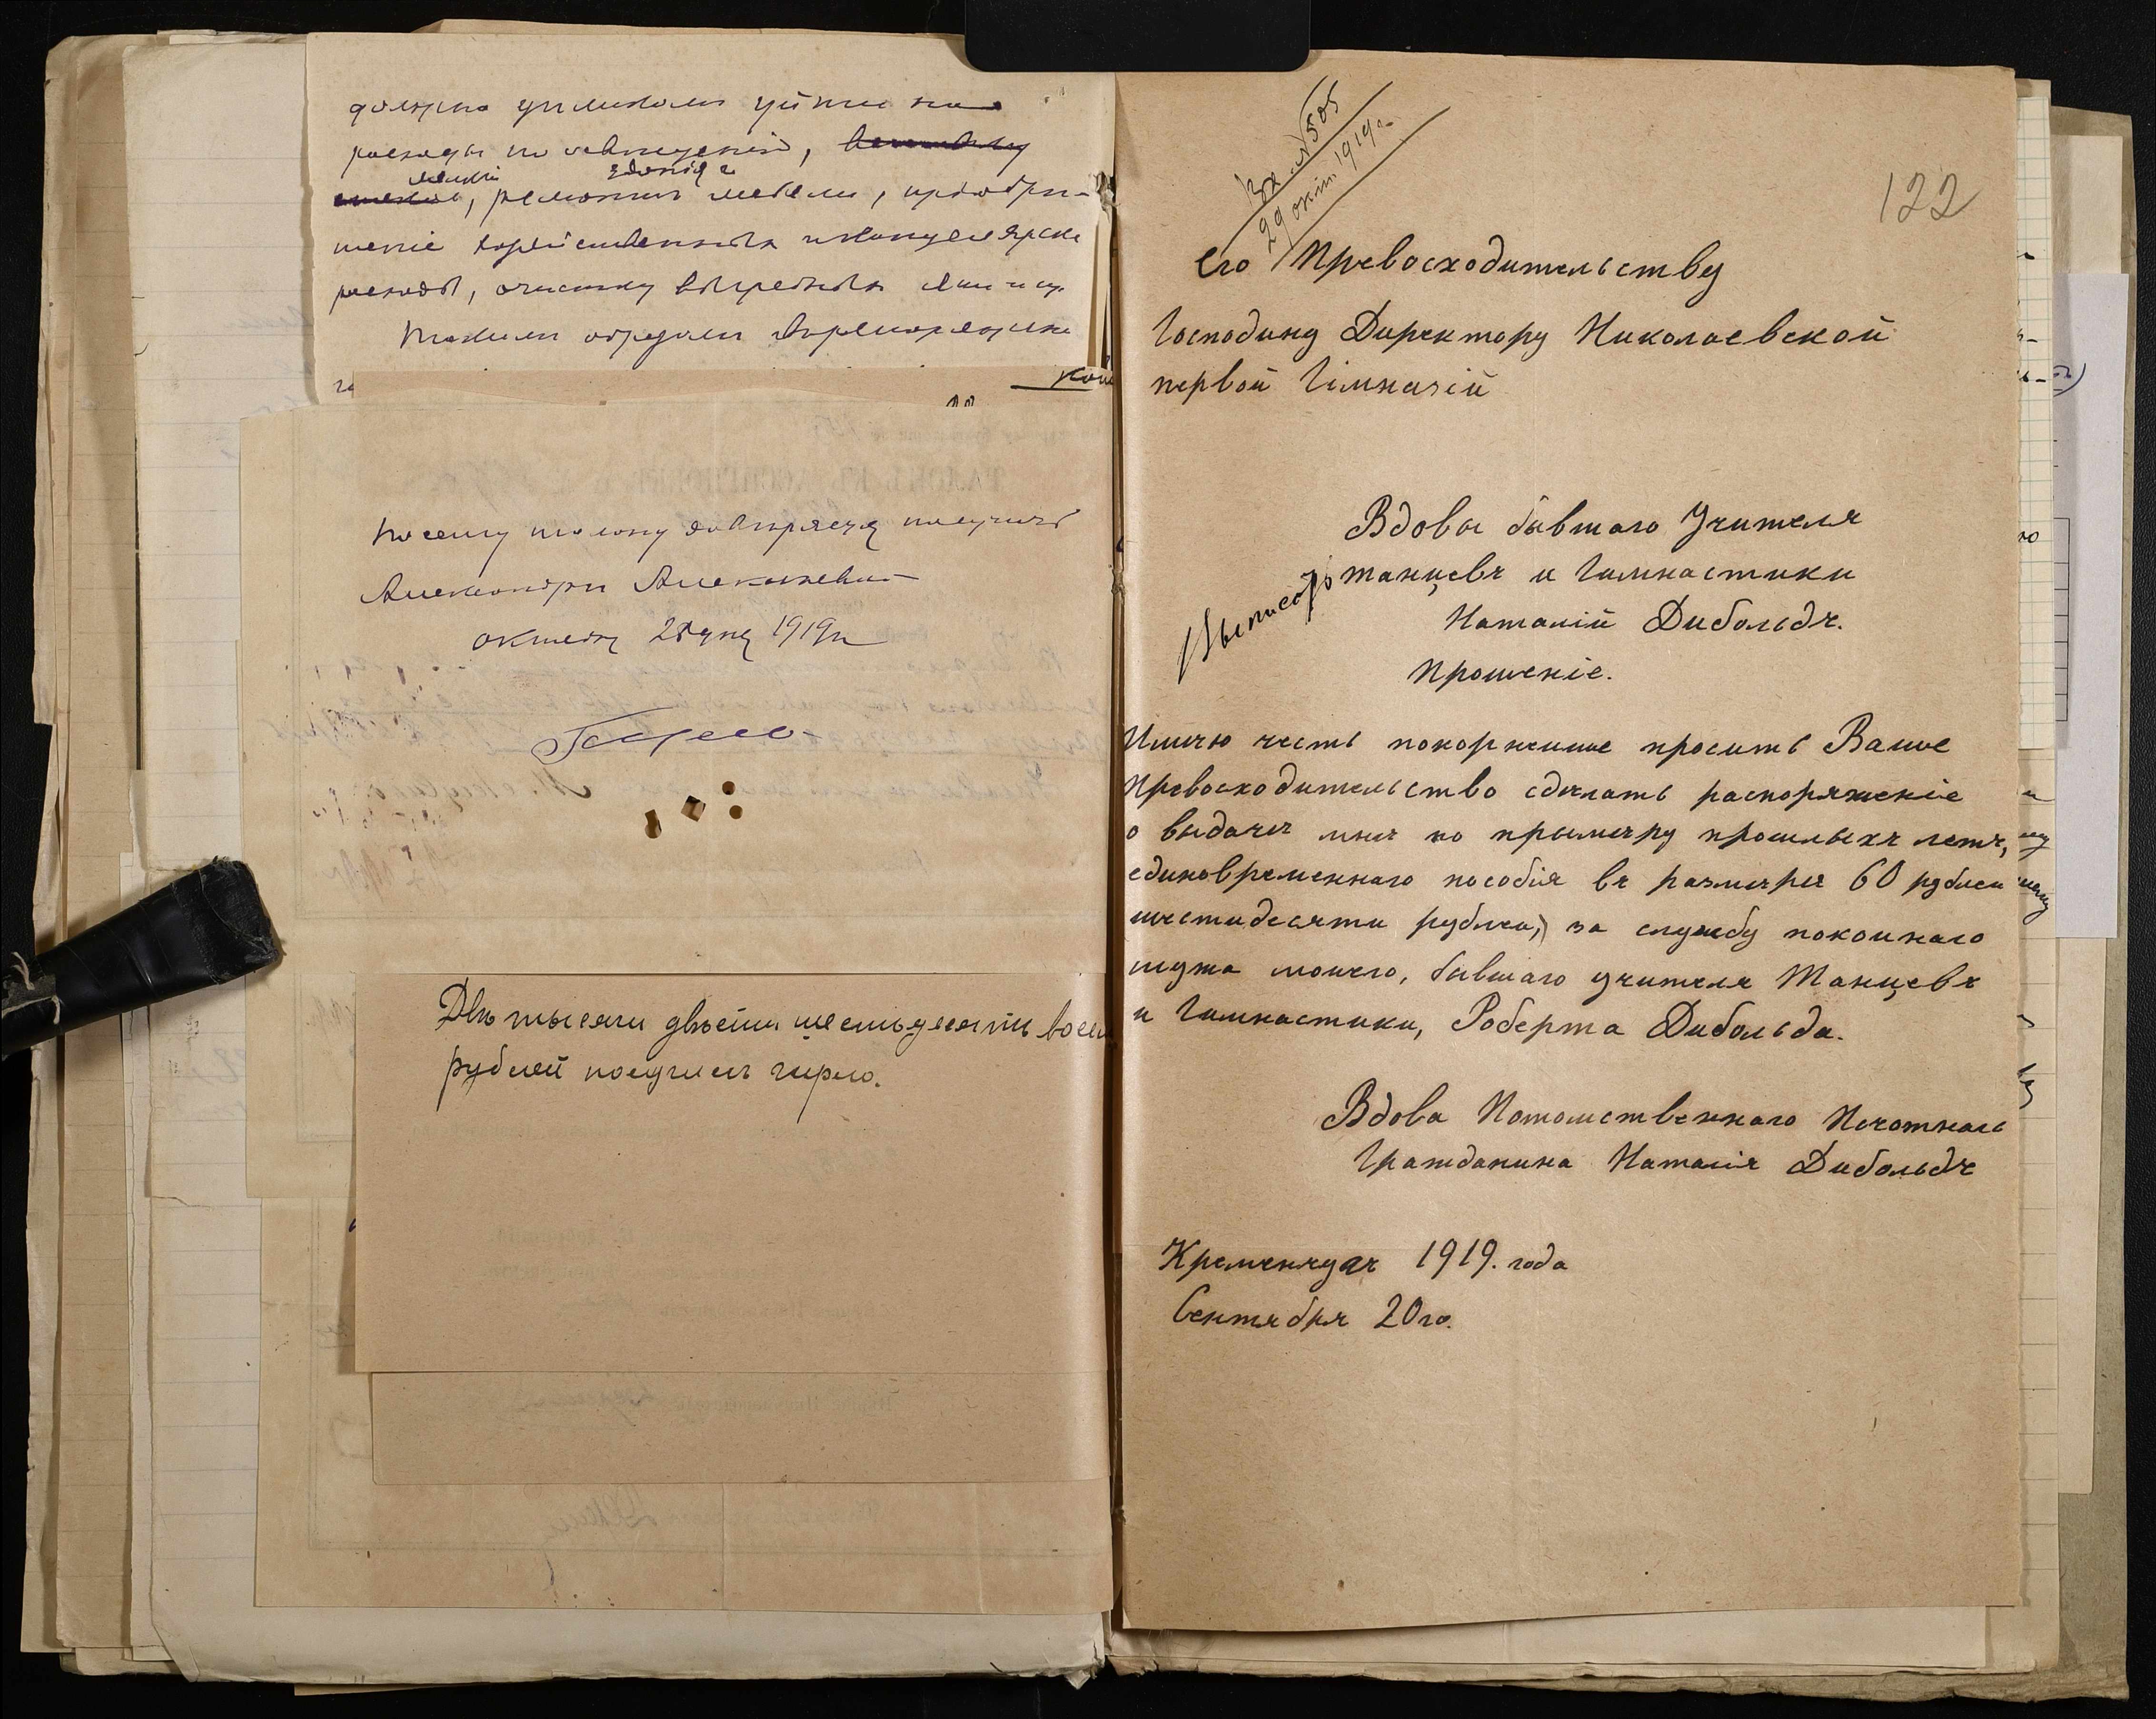 расходы по освещенію,
мелкій зданія и
ремонтъ мебели, пріобрѣ-
теніе хозяйственныя и канцелярск
расходы, очистку выгребныхъ ямъ и пр.
Такимъ образомъ
По сему талону довѣряю получить
Александру Алексеевичу
октября 28 дня 1919 г.
Двѣ тысячи двѣсти шестьдесятъ восем
рублей получилъ
Вх. № 505
29 окт. 1919 г.
122
Его Превосходительству
Господину Директору Николаевской
первой Гімназій
Вдовы бывшаго Учителя
танцевъ и Гимнастики
Наталій Дибольдъ.
Прошеніе.
Имѣю честь покорнѣише просить Ваше
Превосходительство сдѣлать распоряженіе
о выдачѣ мнѣ по прымѣру прошлыхъ летъ,
единовременнаго пособія въ размѣрѣ 60 рублеи
шестидесяти рублеи,) за службу покоинаго
мужа моего, бывшаго учителя Танцевъ
и Гимнастики, Роберта Дибольда.
Вдова Потомственнаго Почотнаго
Гражданина Наталія Дибольдъ
Кременчугъ 1919. года
Сентября 20го.